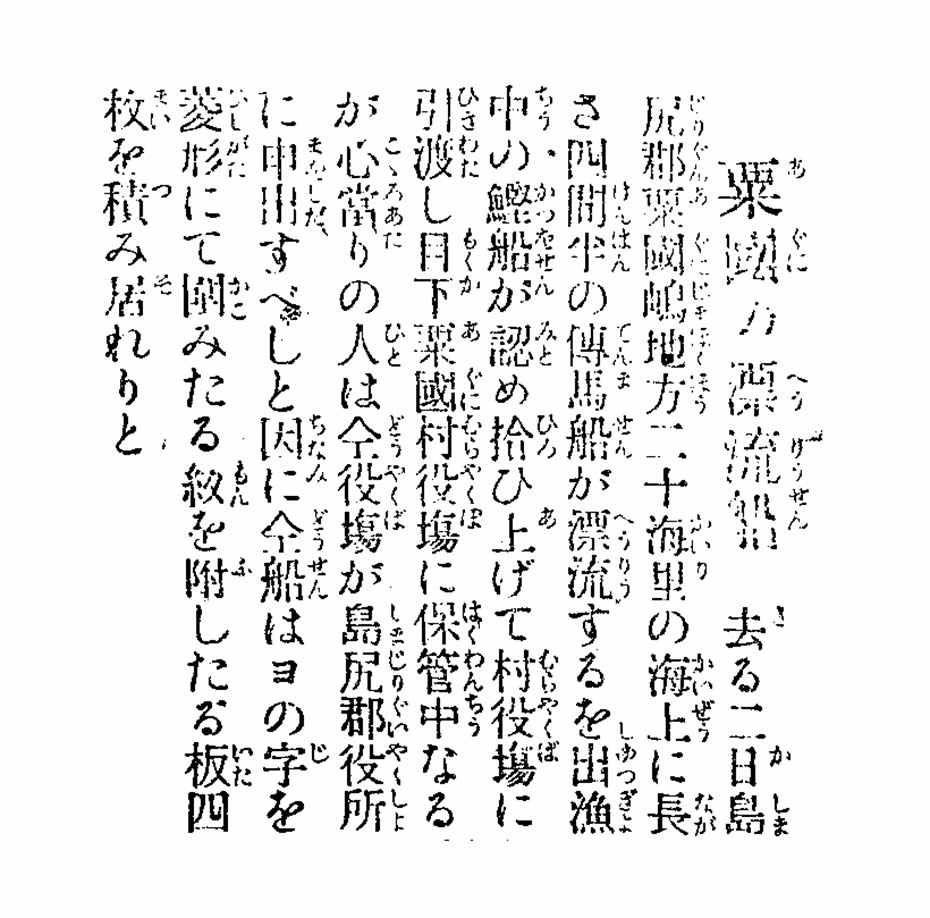 粟國の漂流船 去る二日島
尻郡粟國嶋地方二十海里の海上に長
さ四間半の傳馬船が漂流するを出漁
中の鰹船が認め拾ひ上げて村役塲に
引渡し目下粟國村役塲に保管中なる
が心當りの人は仝役塲が島尻郡役所
に申出すべしと因に仝船はヨの字を
菱形にて圍みたる紋を附したる板四
枚を積み居れりと